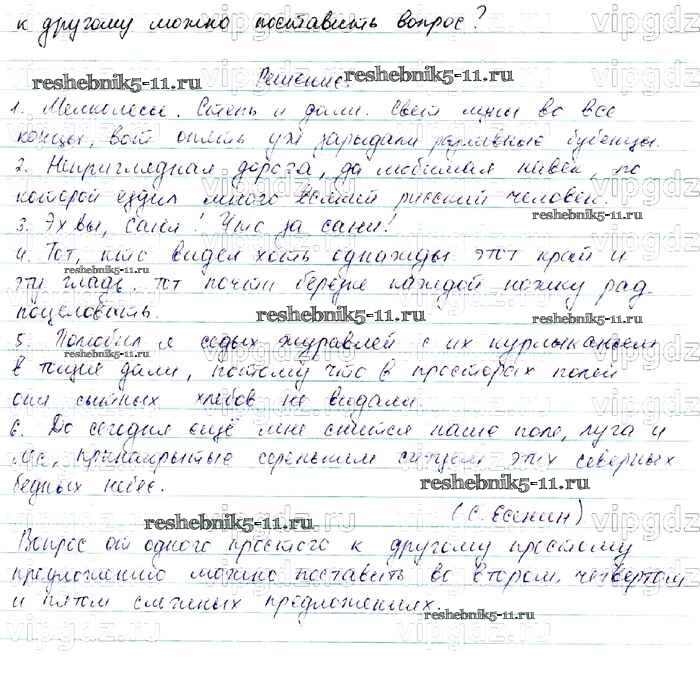 к другому можно поставить вопрос?
Решение.
1. Мелколесье. Степь и дали. Свет луны во все
концы, вот опять уж зарыдали разливные бубенцы.
2. Неприглядная дорога, да любимая навек, по
которой ездил много всякий русский человек.
3. Эх вы, сани! Что за сани!
4. Тот, кто видел хоть однажды этот край и
эту гладь, тот почти берёзке каждой ножку рад
поцеловать.
5. Полюбил я седых журавлей с их курлыканьем
в тощие дали, потому что в просторах полей
они сытных хлебов не видали.
6. До сегодня ещё мне снится наше поле, луга и
лес, принакрытые сереньким ситцем этих северных
бедных небес.
(С. Есенин)
Вопрос от одного простого к другому простому
предложению можно поставить во втором, четвертом
и пятом сложных предложениях.
reshebnik5-11.ru
vipgdz